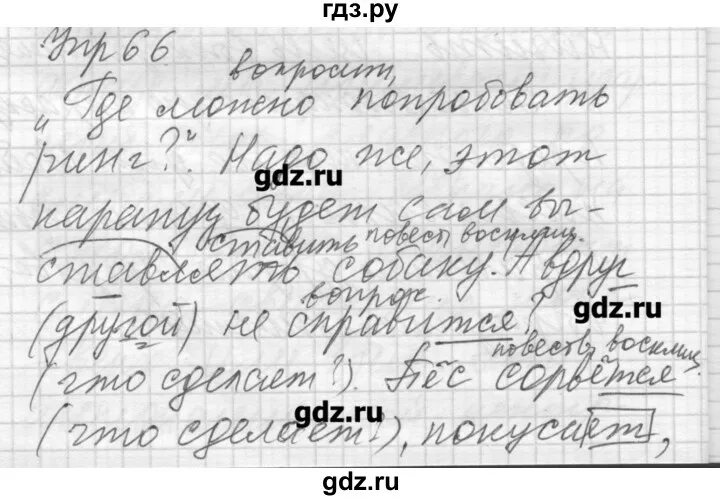 гдз.ру
Упр 66
вопросит.
„Где можно попробовать
ринг?". Надо же, этот
gdz.ru
карапуз будет сам вы-
ставить повест. восклиц.
ставлять собаку. А вдруг
вопрос.
gdz.ru
(другой) не справится?
повеств. восклиц.
(что сделает?). Пёс сорвётся
gdz.ru
(что сделает?), покусает,